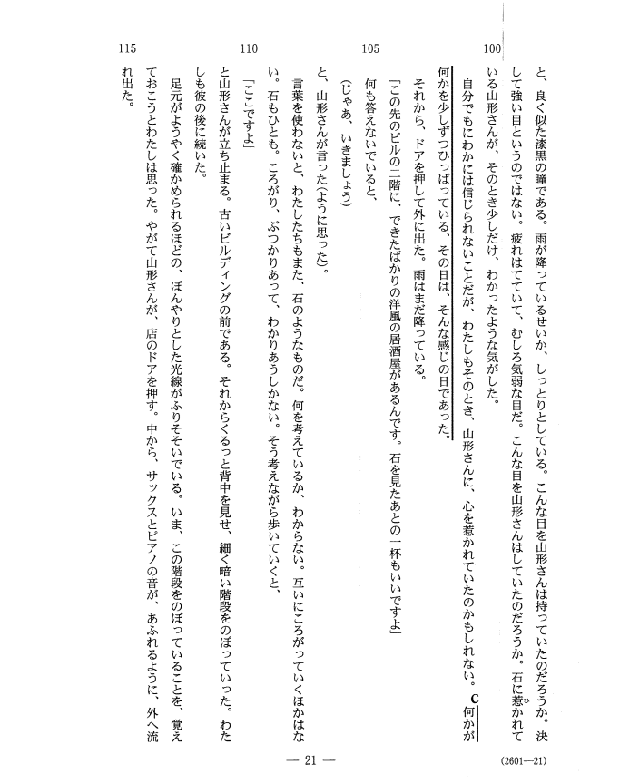 と、良く似た漆黒の瞳である。雨が降っているせいか、しっとりとしている。こんな目を山形さんは持っていたのだろうか。決
して強い目というのではない。疲れはてていて、むしろ気弱な目だ。こんな目を山形さんはしていたのだろうか。石に惹かれて
ひ
いる山形さんが、そのとき少しだけ、わかったような気がした。
100
自分でもにわかには信じられないことだが、わたしもそのとき、山形さんに、心を惹かれていたのかもしれない。C何かが
何かを少しずつひっぱっている、その日は、そんな感じの日であった。
それから、ドアを押して外に出た。雨はまだ降っている。
「この先のビルの二階に、できたばかりの洋風の居酒屋があるんです。石を見たあとの一杯もいいですよ」
何も答えないでいると、
105
(じゃあ、いきましょう)
と、山形さんが言った(ように思った)。
言葉を使わないと、わたしたちもまた、石のようなものだ。何を考えているか、わからない。互いにころがっていくほかはな
い。石もひとも。ころがり、ぶつかりあって、わかりあうしかない。そう考えながら歩いていくと、
「ここですよ」
110
と山形さんが立ち止まる。古いビルディングの前である。それからくるっと背中を見せ、細く暗い階段をのぼっていった。わた
しも彼の後に続いた。
足元がようやく確かめられるほどの、ぼんやりとした光線がふりそそいでいる。いま、この階段をのぼっていることを、覚え
ておこうとわたしは思った。やがて山形さんが、店のドアを押す。中から、サックスとピアノの音が、あふれるように、外へ流
れ出た。
115
— 21 —
(2601—21)